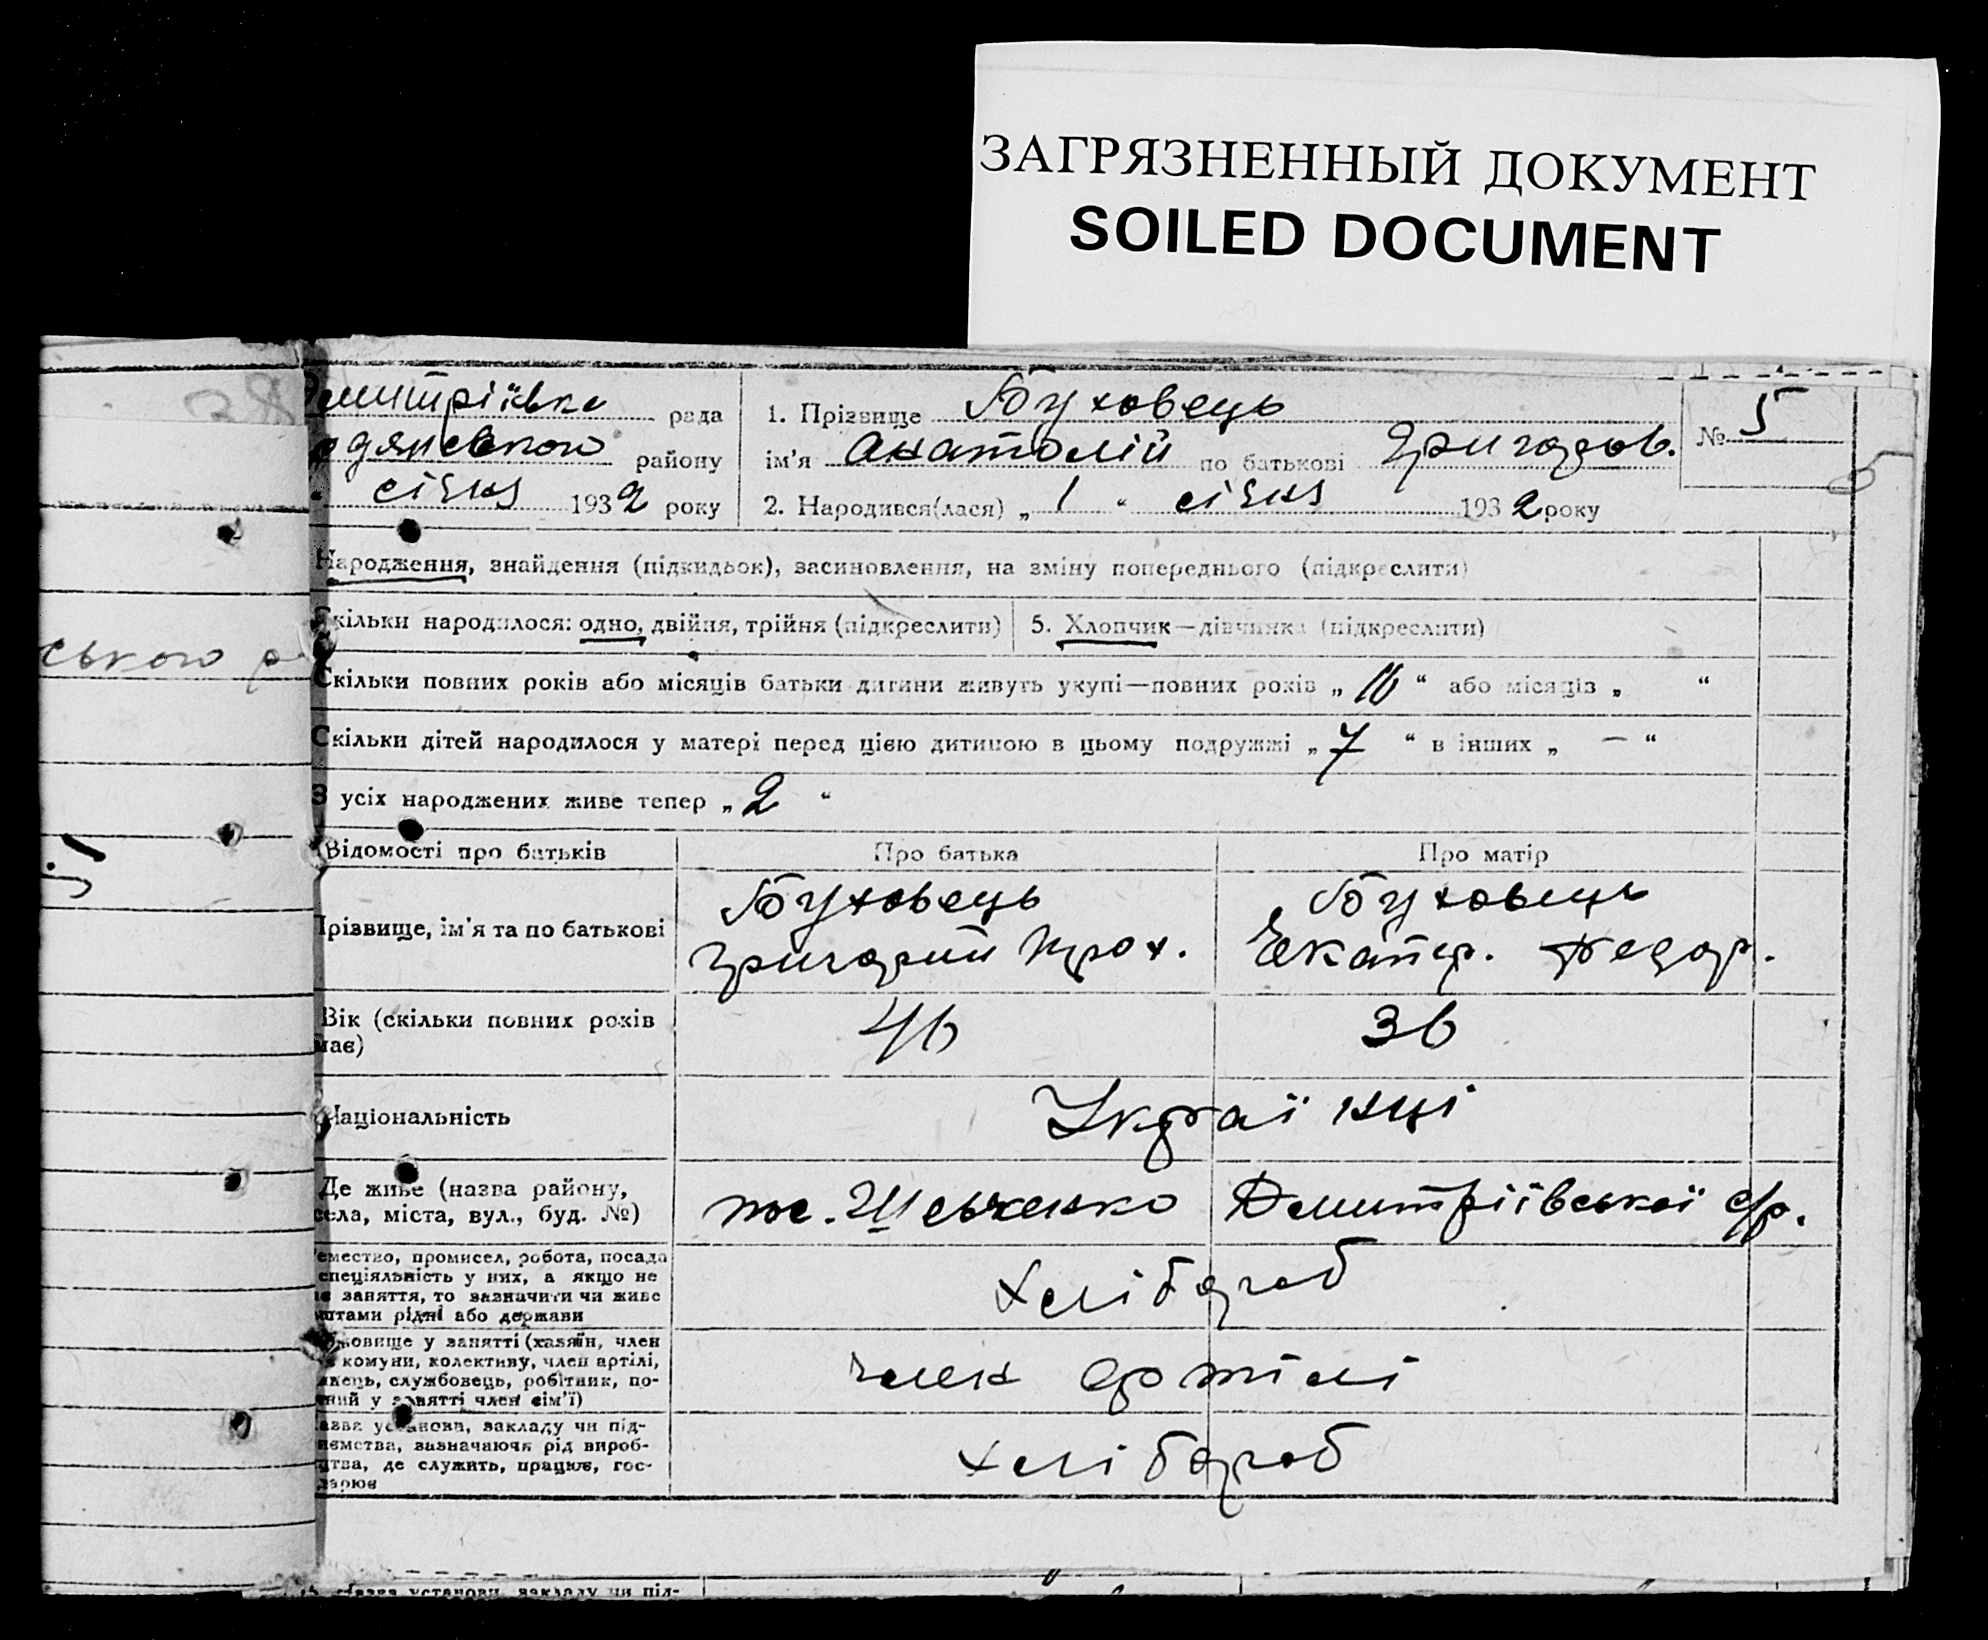 ЗАГРЯЗНЕННЫЙ ДОКУМЕНТ
SOILED DOCUMENT
ського
Дмитріївка рада
району
" січня 1932 року
1. Прізвище Буховець
ім'я Анатолій по батькові Григоров.
2. Народився(лася) „ 1 " січня 1932 року
№ 5
5
Народження, знайдення (підкидьок), засиновлення, на зміну попереднього (підкреслити)
Скільки народилося: одно, двійня, трійня (підкреслити)
5. Хлопчик—дівчинка (підкреслити)
Скільки повних років або місяців батьки дитини живуть укупі—повних років „ 16 " або місяців „ "
Скільки дітей народилося у матері перед цією дитиною в цьому подружжі „ 7 " в інших „ — "
З усіх народжених живе тепер „ 2 "
Відомості про батьків
Про батька
Про матір
Прізвище, ім'я та по батькові
Буховець
Григорий Прох.
Буховець
Екатер. Федор.
Вік (скільки повних років
має)
46
36
Національність
Українці
Де живе (назва району,
села, міста, вул., буд. №)
пос. Шевченко Дмитріївської с/р.
емество, промисел, робота, посада
спеціяльність у них, а якщо не
заняття, то зазначити чи живе
штами рідні або держави
хлібороб
овище у занятті (хазяїн, член
комуни, колективу, член артілі,
службовець, робітник, по-
у занятті член сім'ї)
член артілі
азва установи, закладу чи під-
ємства, зазначаючи рід вироб-
цтва, де служить, працює, гос-
дарює
хлібороб
Назва установи, закладу чи під-